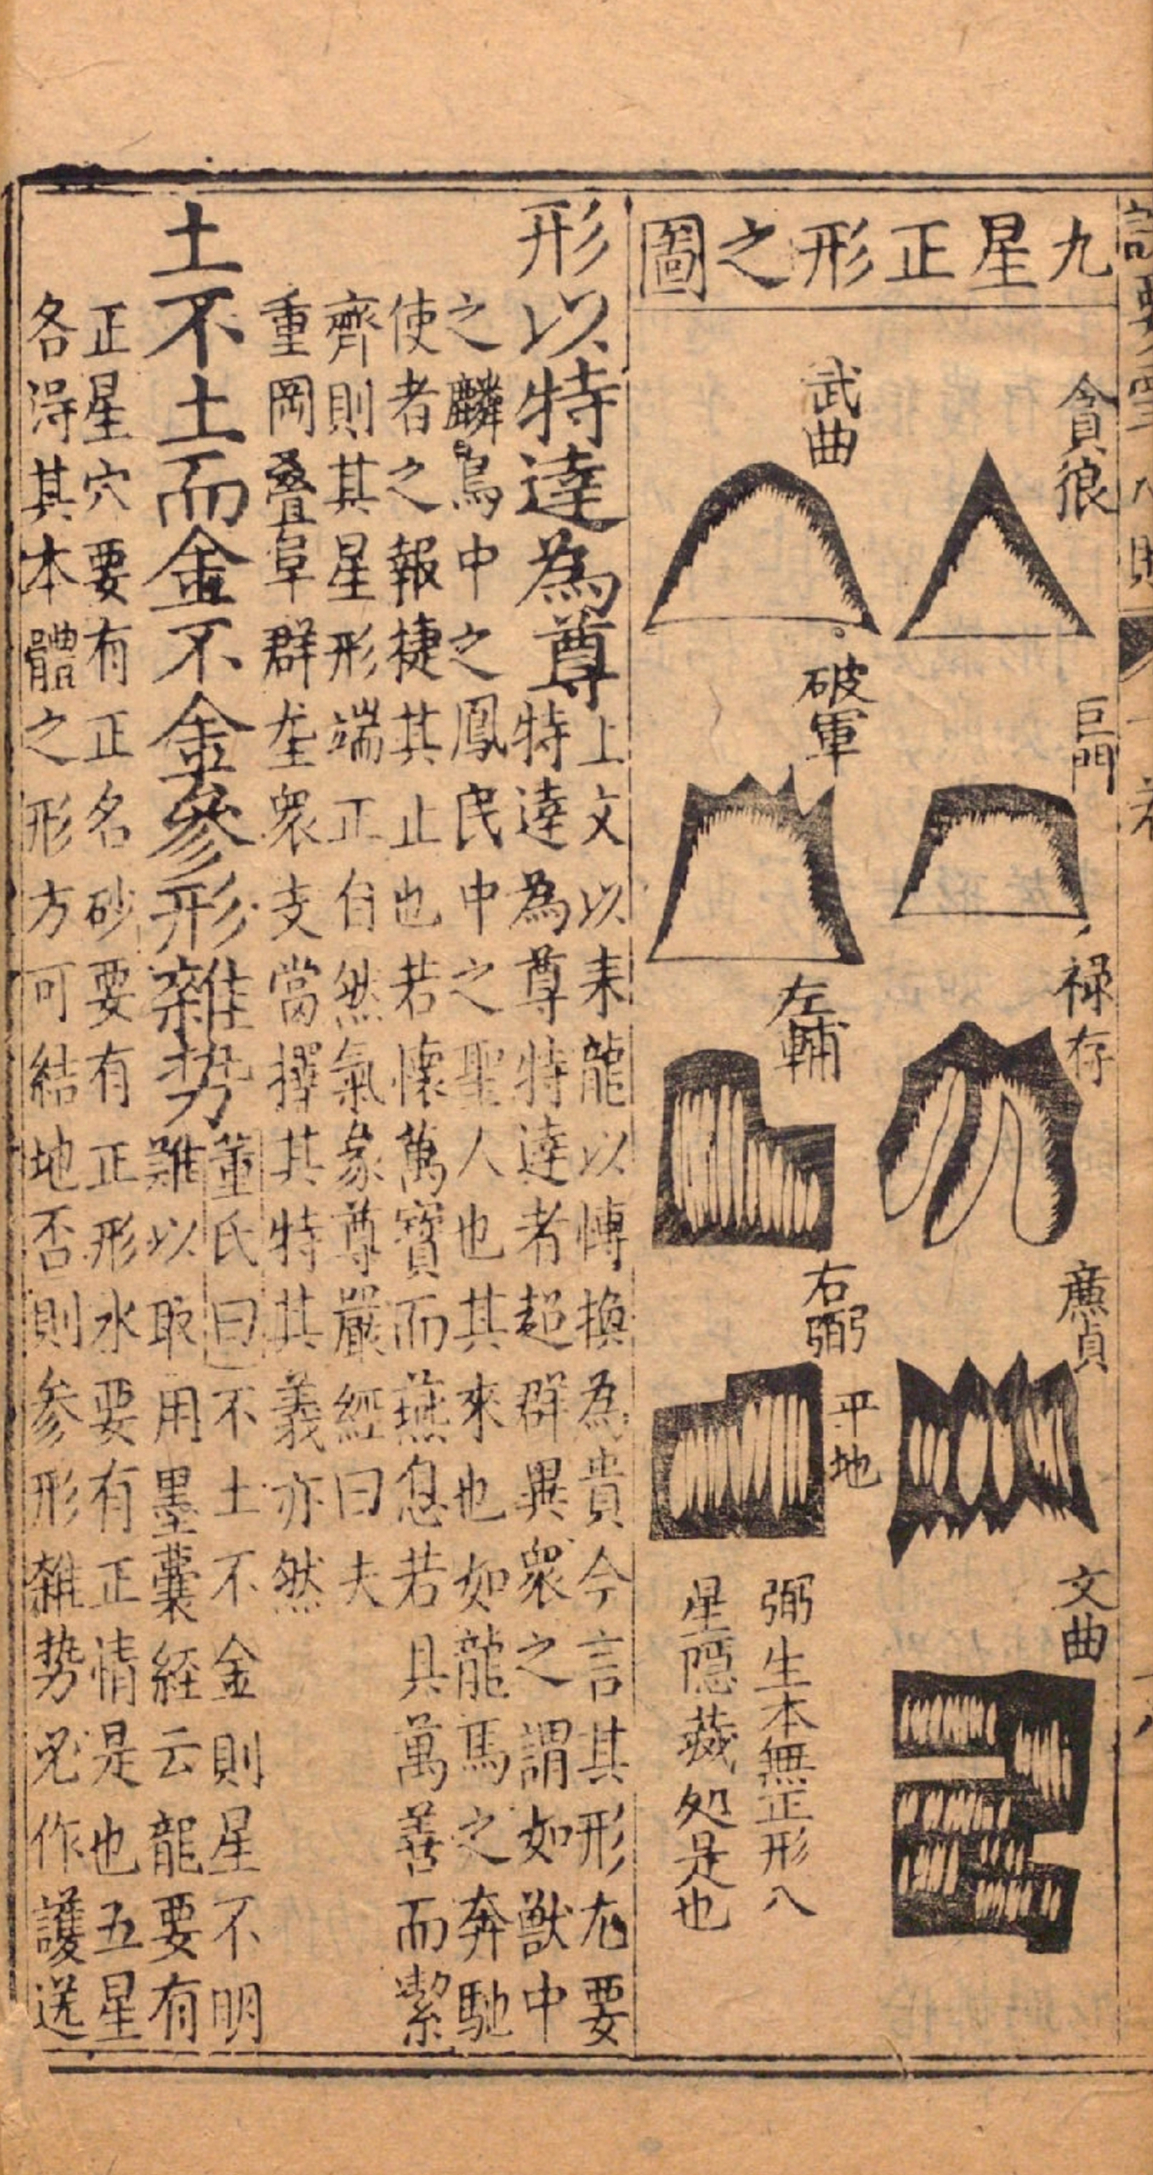 九星正形之圖
貪狼
巨門
祿存
廉貞
文曲
武曲
破軍
左輔
右弼
平地
弼生本無正形八
星隱藏処是也
形以特達為尊
上文以来龍以慱換為貴今言其形尤要
特達為尊特達者超群異衆之謂如獸中
之麟鳥中之鳳民中之聖人也其來也如龍馬之奔馳
使者之報捷其止也若懷萬寶而燕息若具萬善而潔
齊則其星形端正自然氣象尊嚴經曰夫
重岡叠阜群垄衆支當擇其特其義亦然
土不土而金不金參形雜势
董氏曰不土不金則星不明
難以取用墨囊経云龍要有
正星穴要有正名砂要有正形水要有正情是也五星
各得其本體之形方可結地否則参形雜势作護送